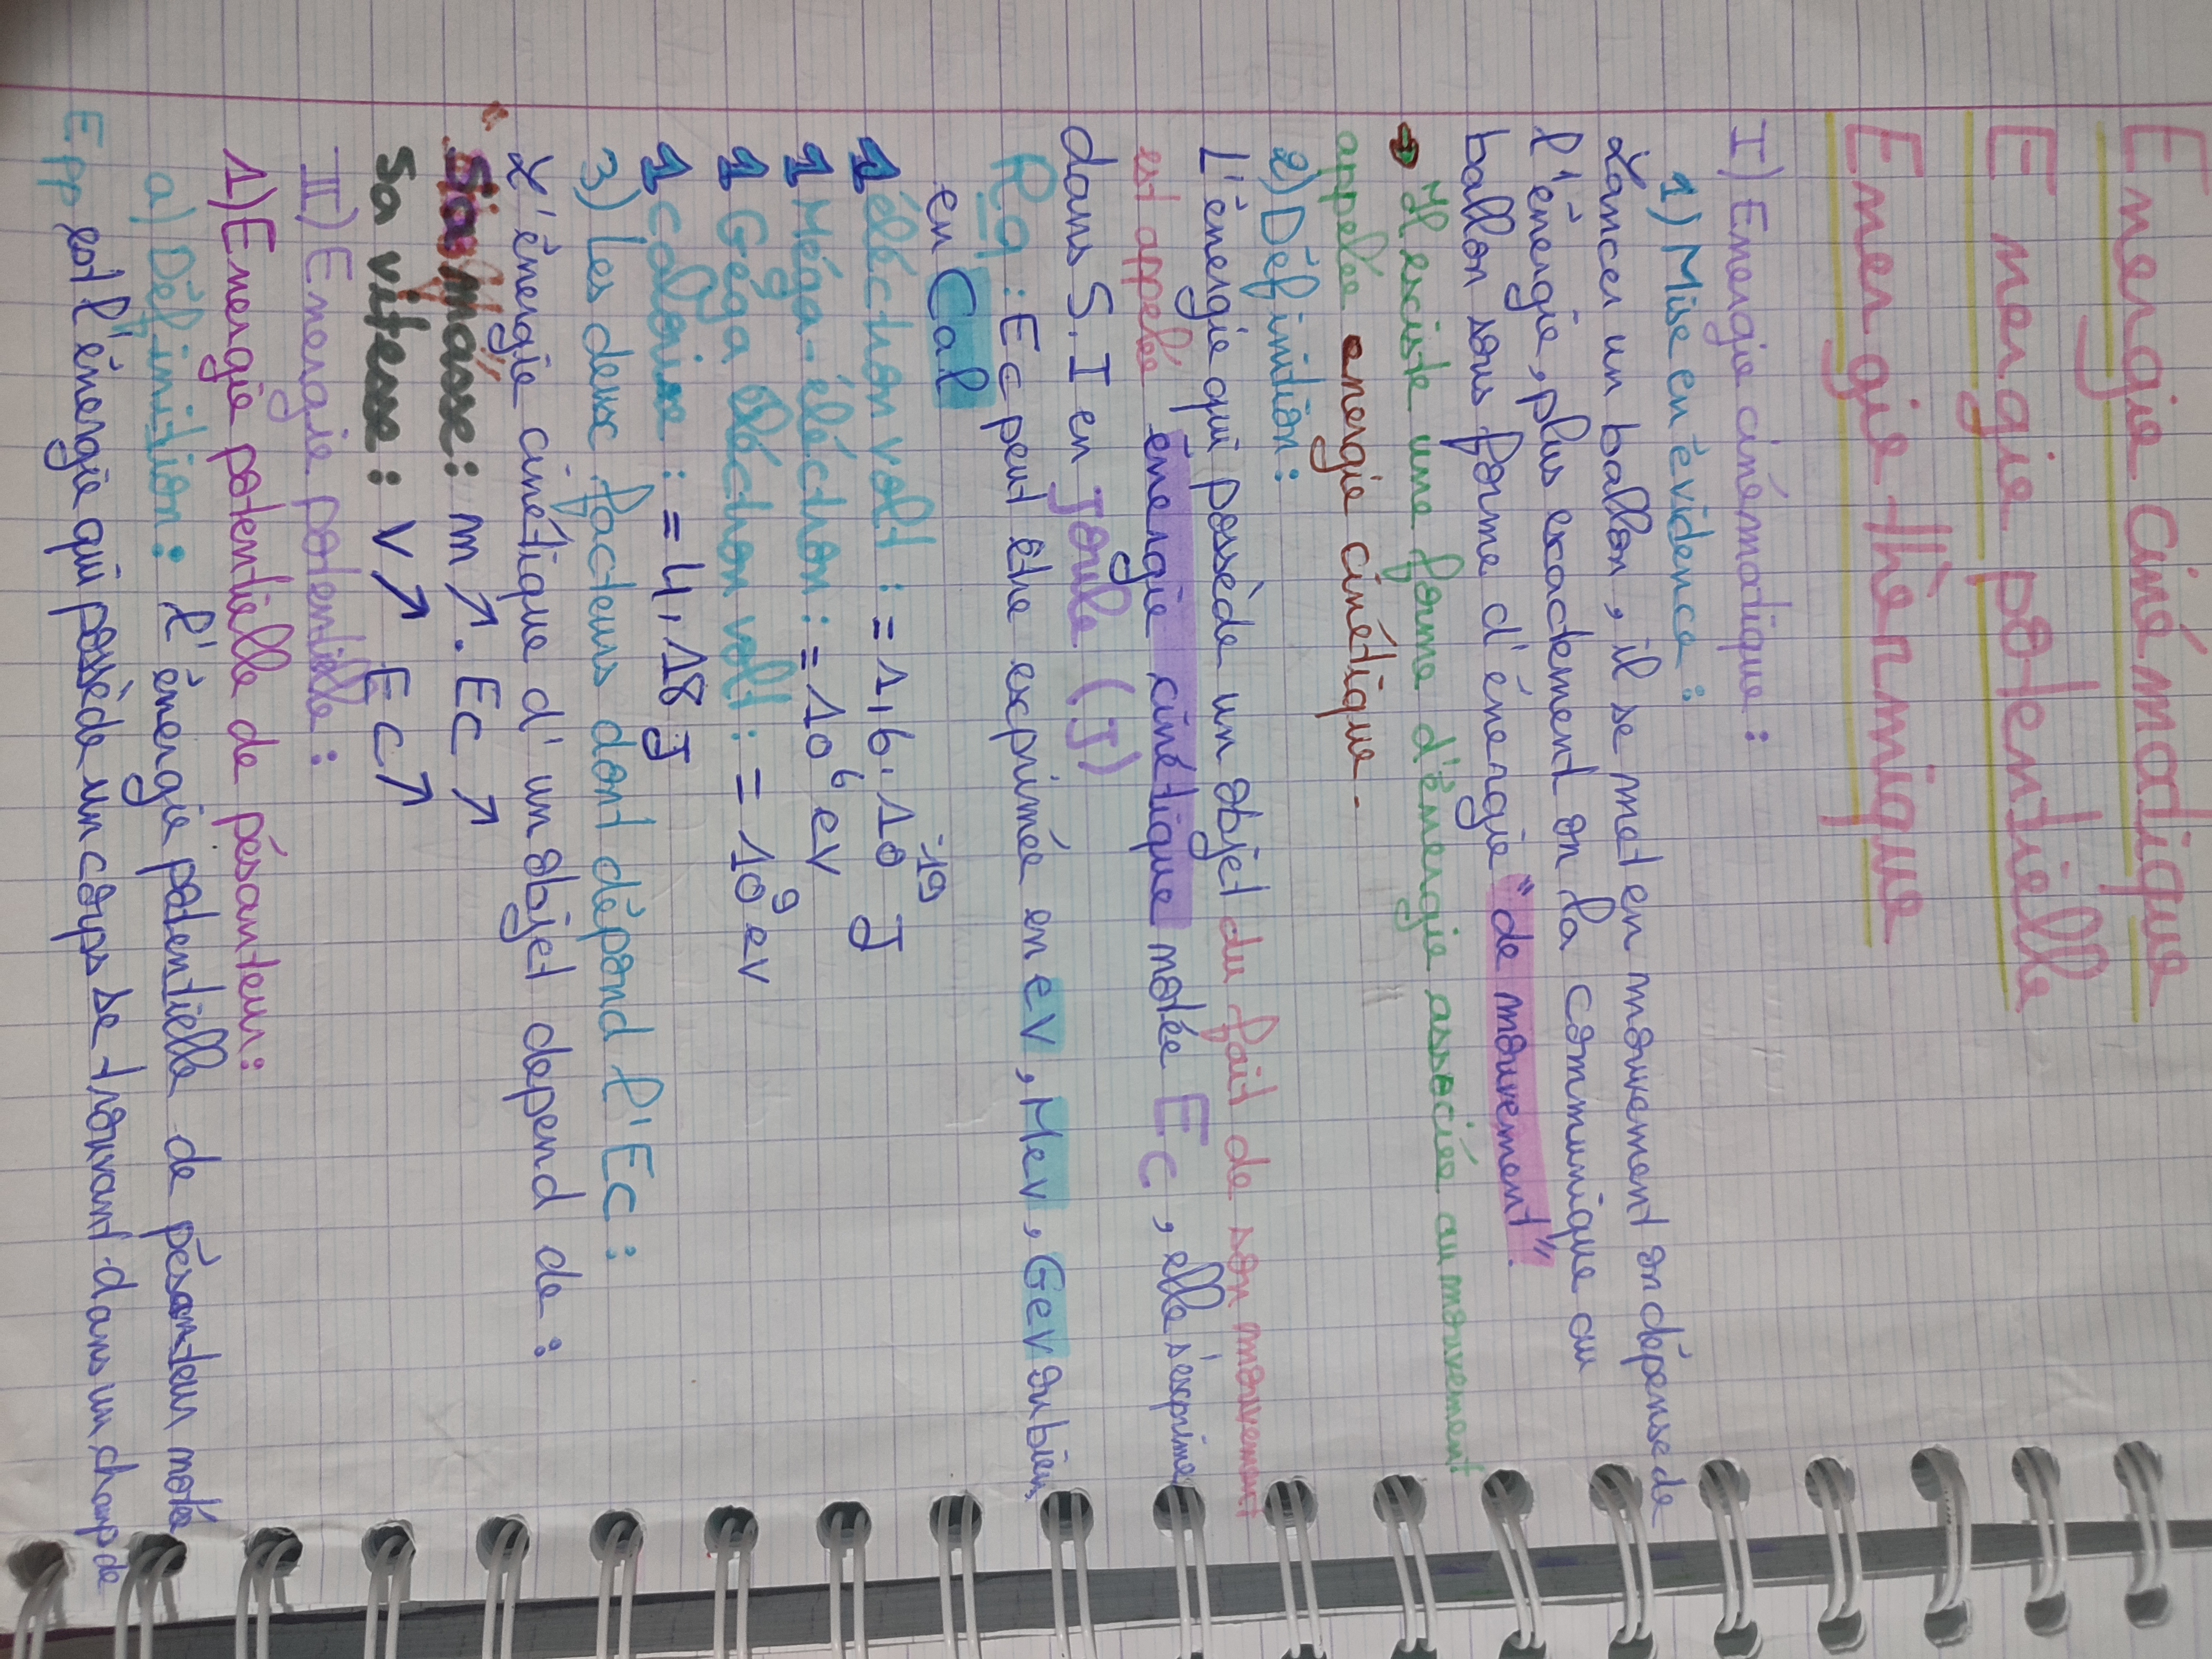 Energie cinématique
Energie potentielle
Energie thèrmique
I) Energie cinématique :
1) Mise en èvidence :
Lancer un ballon, il se met en mouvement on dépense de
l'énergie, plus exactement on la communique au
ballon sous forme d'énergie "de mouvement".
→ Il existe une forme d'énergie associée au mouvement
appelée energie cinétique.
2) Définition :
L'énergie qui possède un objet du fait de son mouvement
est appelée énergie cinétique notée Ec, elle s'exprime
dans S.I en Joule (J)
Rq : Ec peut être exprimée en ev, Mev, Gev ou bien
en Cal
1 éléctron volt : = 1,6.10⁻¹⁹ J
1 Méga-éléctron : = 10⁶ ev
1 Géga éléctron volt : = 10⁹ ev
1 calorie : = 4,18 J
3) Les deux facteurs dont dépend l'Ec :
L'énergie cinétique d'un objet depend de :
Sa masse : m ↗. Ec ↗
Sa vitesse : v ↗ Ec ↗
II) Energie potentielle :
1) Energie potentielle de pésanteur :
a) Définition : l'énergie potentielle de pésanteur notée
Epp est l'énergie qui possède un corps se trouvant dans un champ de